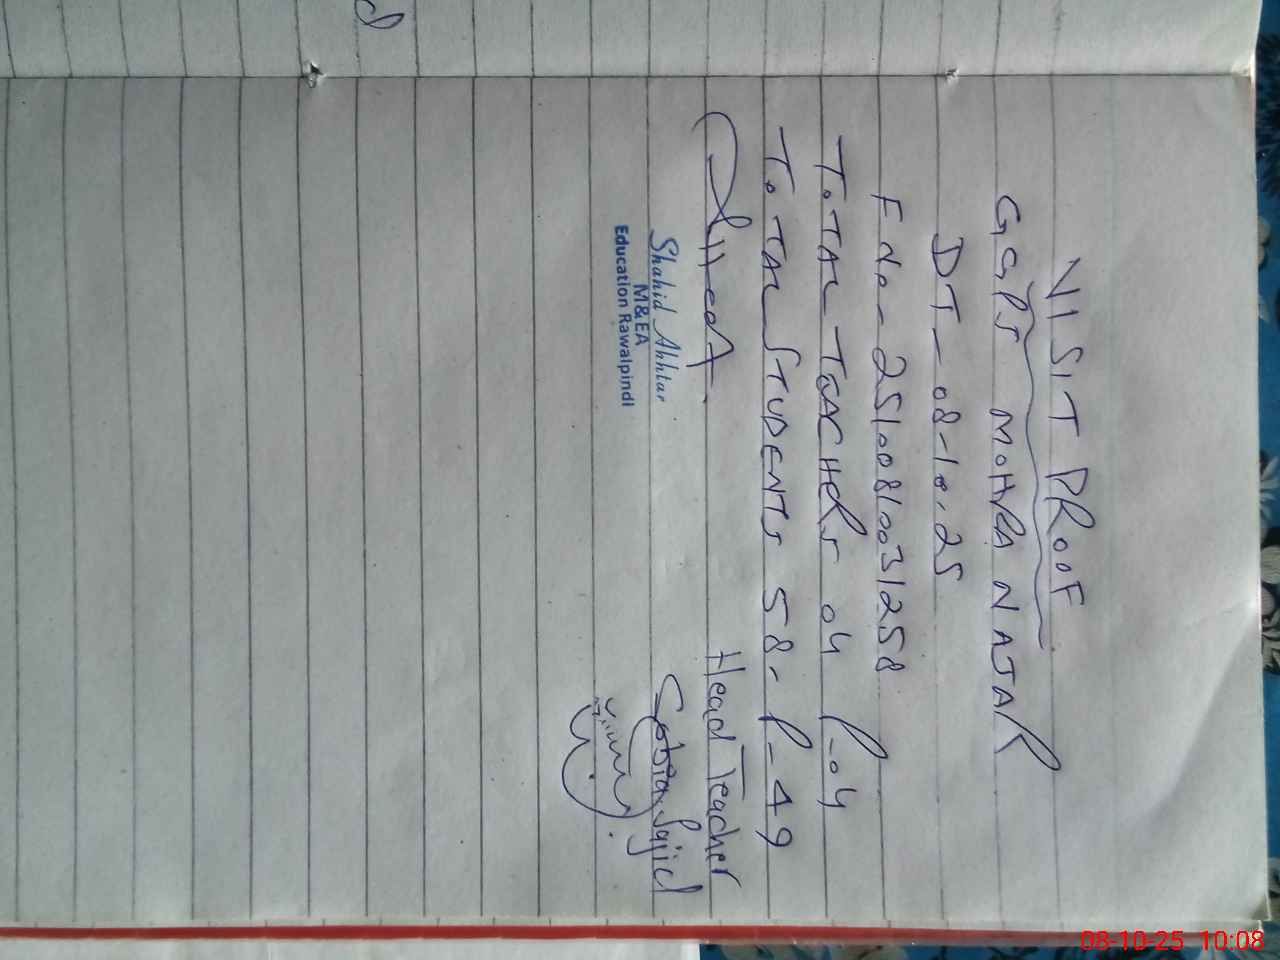 VISIT PROOF
GGPS MOHRA NAJAR
DT - 08-10-25
F No - 25100810031258
TOTAL TEACHERS 04 P-04
TOTAL STUDENTS 58- P-49
Head Teacher
Sobia Sajid
Shahid Akhtar
M&EA
Education Rawalpindi
08-10-25 10:08